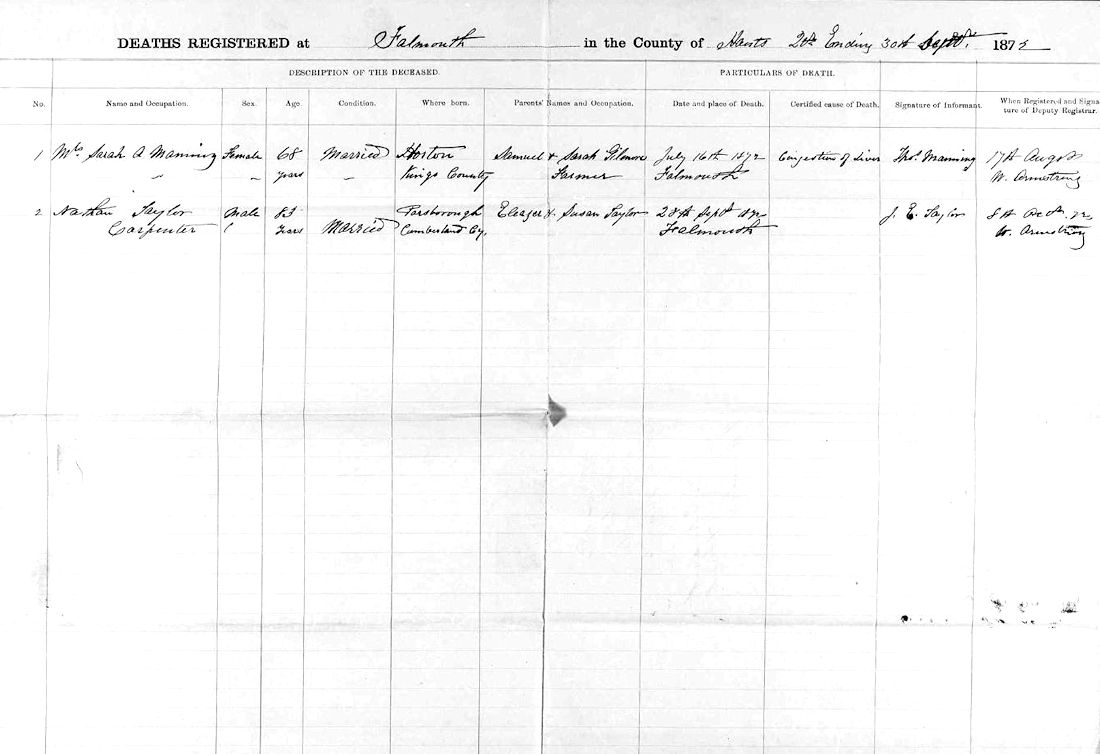 DEATHS REGISTERED at Falmouth in the County of Hants Ending 30th Sept. 187
DESCRIPTION OF THE DECEASED. PARTICULARS OF DEATH.
No. Name and Occupation. Sex. Age. Condition. Where born. Parents' Names and Occupation. Date and place of Death. Certified cause of Death. Signature of Informant. When Registered and Signa-
ture of Deputy Registrar.
1 Mrs Sarah A Manning Female 68 Married Horton Samuel & Sarah Gilmore July 16th 1872 Congestion of Liver Thos. Manning 17th Augst
" " years " Kings County Farmer Falmouth W. Armstrong
2 Nathan Taylor Male 83 Parsborough Eleazer & Susan Taylor 28th Sept 1872 J. E. Taylor 8th Oct. 72
Carpenter years Married Cumberland Cy. Falmouth W. Armstrong